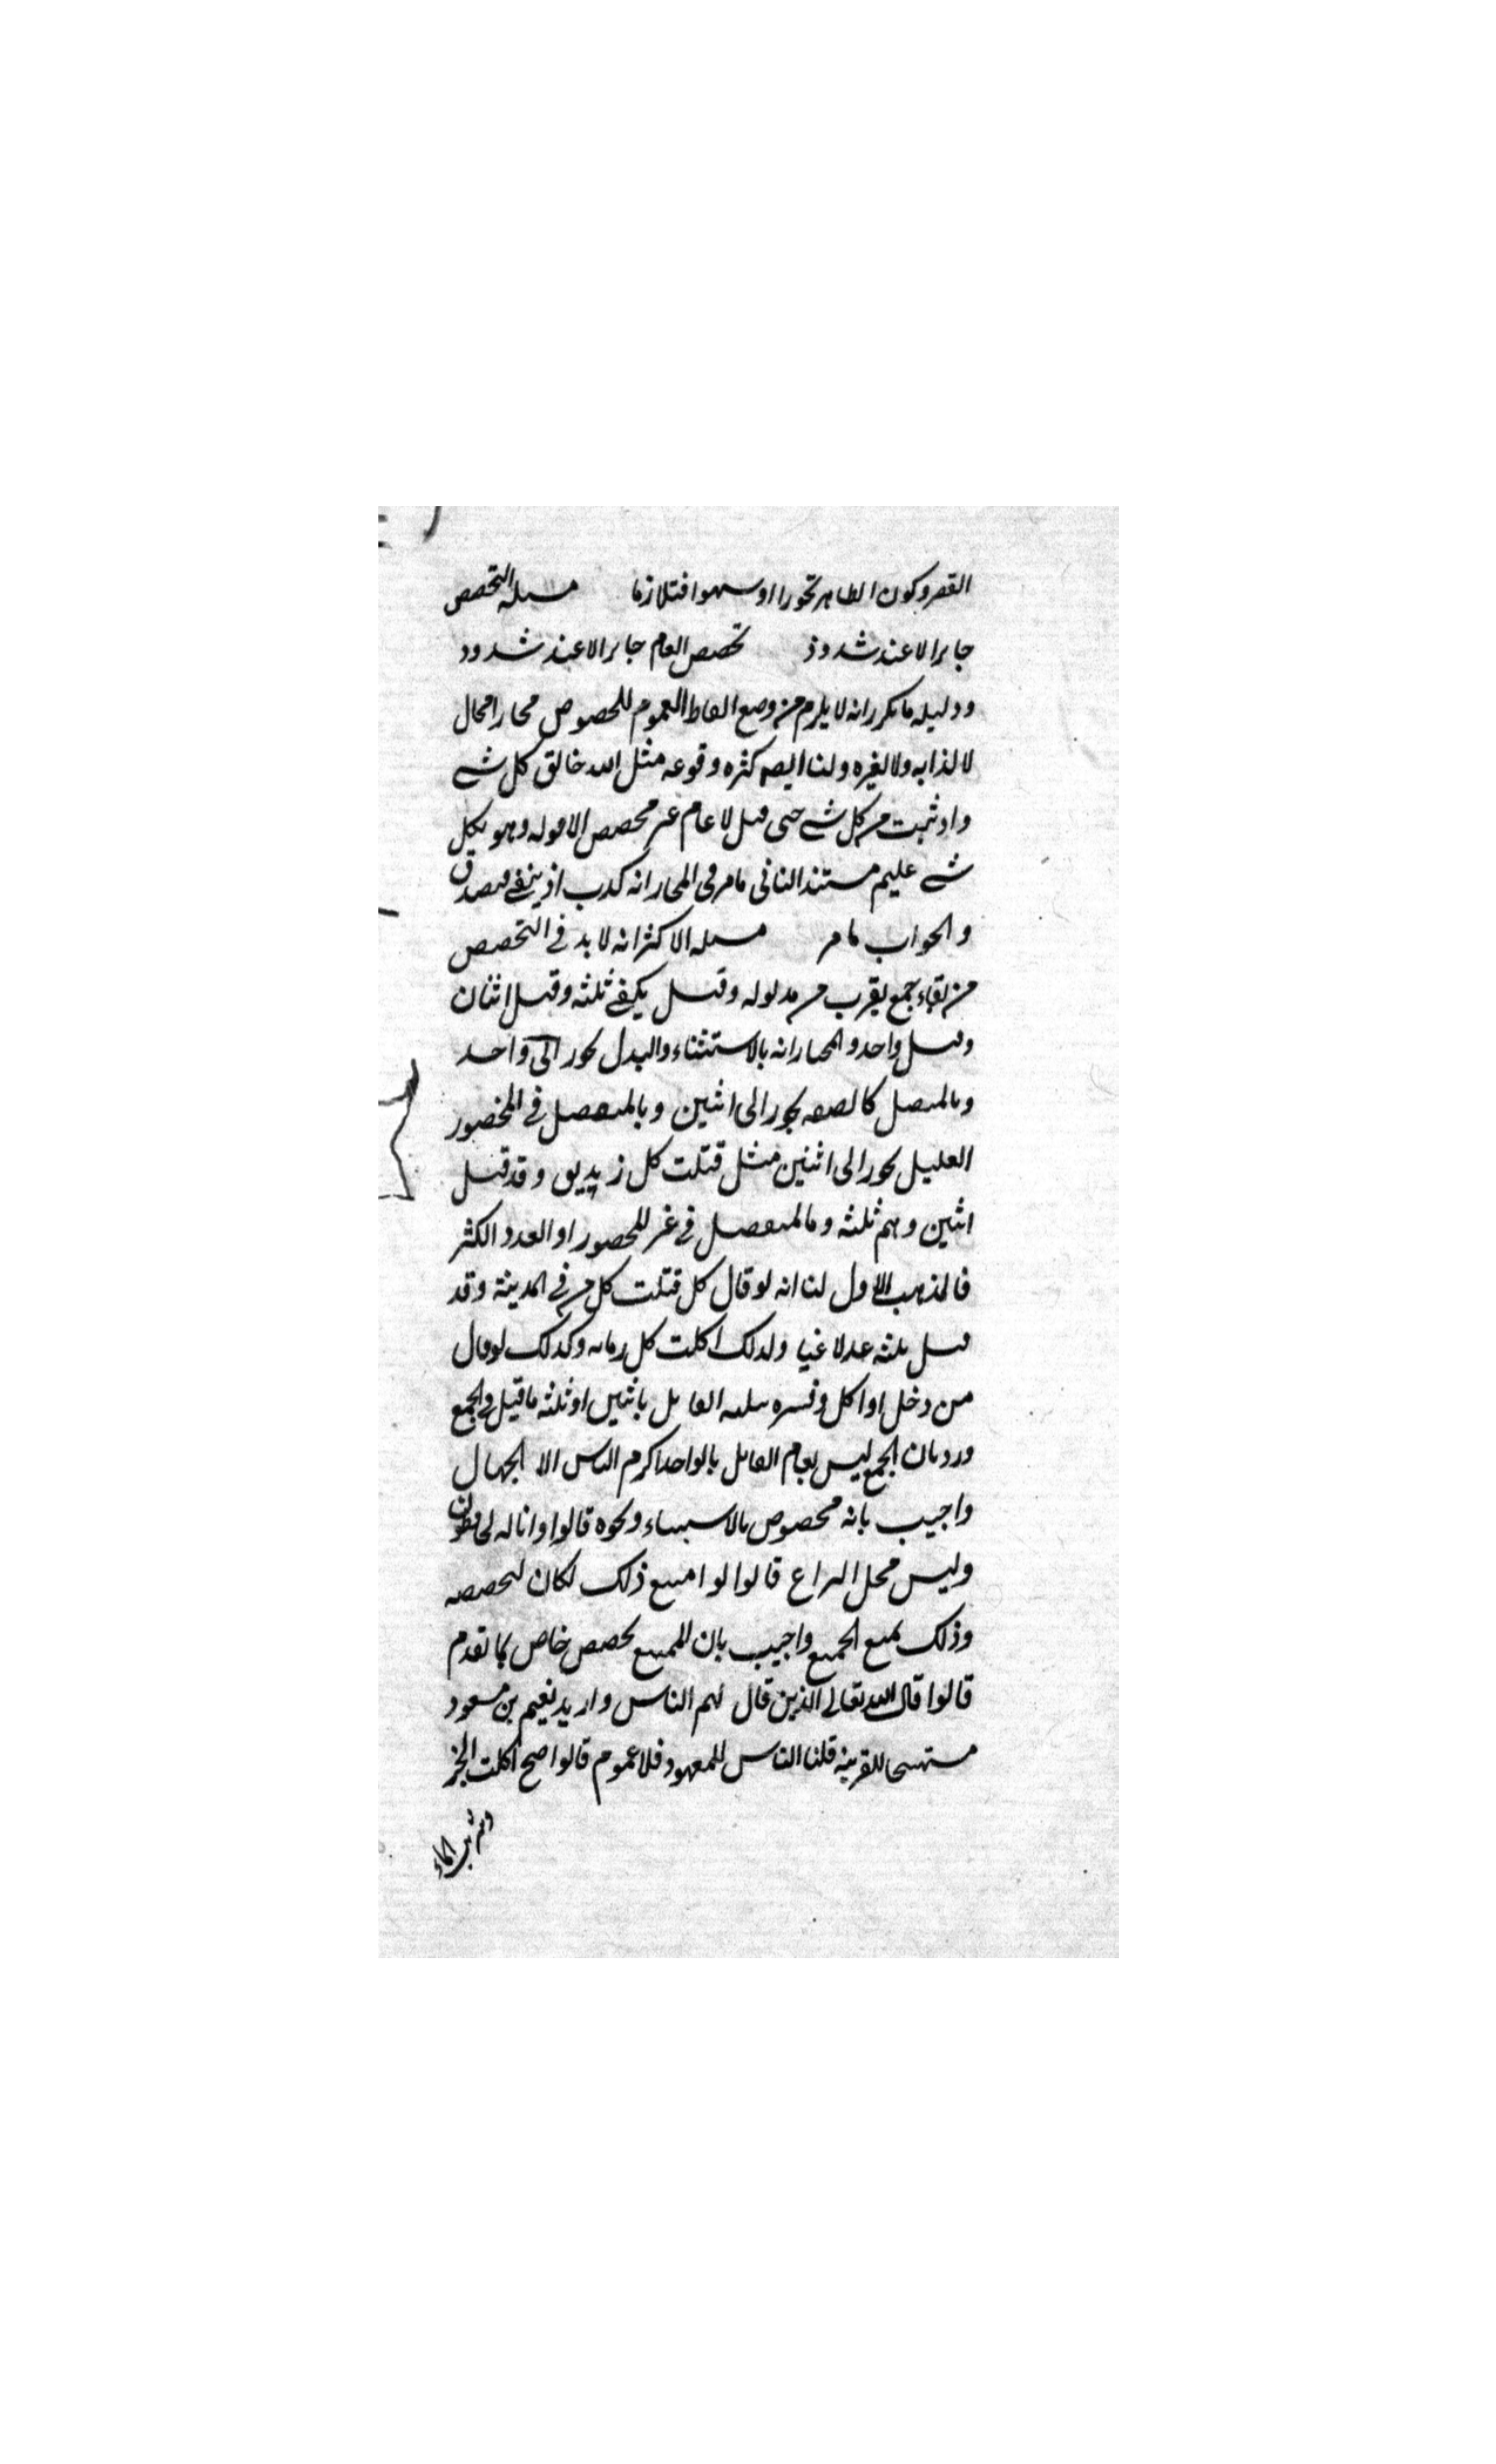 القصر وكون الظاهر تجوزا او سهوا فتلازما مسئلة التخصيص
جايز الا عند شذوذ تخصيص العام جايز الا عند شذوذ
ودليله ما تكرر انه لا يلزم من وضع الفاظ العموم للخصوص مجازا محال
لا لذاته ولا لغيره ولنا ايضا كثرة وقوعه مثل الله خالق كل شئ
واوتيت من كل شئ حتى قيل لا عام غير مخصص الا قوله وهو بكل
شئ عليم مستند النافى ما مر فى المجاز انه كذب اذ ينفى فيصدق
والجواب ما مر مسئلة الاكثر انه لا بد فى التخصيص
من بقاء جمع يقرب من مدلوله وقيل يكفى ثلثة وقيل اثنان
وقيل واحد والمختار انه بالاستثناء والبدل يجوز الى واحد
وبالمتصل كالصفة يجوز الى اثنين وبالمنفصل فى المحصور
القليل يجوز الى اثنين مثل قتلت كل زنديق وقد قتل
اثنين وهم ثلثة وبالمنفصل فى غير المحصور او العدد الكثير
فالمذهب الاول لنا انه لو قال كل قتلت كل من فى المدينة وقد
قتل ثلثة عد لاغيا وكذلك اكلت كل رمانة وكذلك لو قال
من دخل او اكل وفسره بثلثة القائل باثنين او ثلثة ما قيل فى الجمع
ورد بان الجمع ليس بعام القائل بالواحد اكرم الناس الا الجهال
واجيب بانه مخصوص بالاستثناء ونحوه قالوا وانا له لحافظون
وليس محل النزاع قالوا لو امتنع ذلك لكان لتخصيصه
وذلك يمنع الجميع واجيب بان الممتنع تخصيص خاص بما تقدم
قالوا قال الله تعالى الذين قال لهم الناس واريد نعيم بن مسعود
قلنا الناس للمعهود فلا عموم قالوا صح اكلت الخبز
وشربت الماء